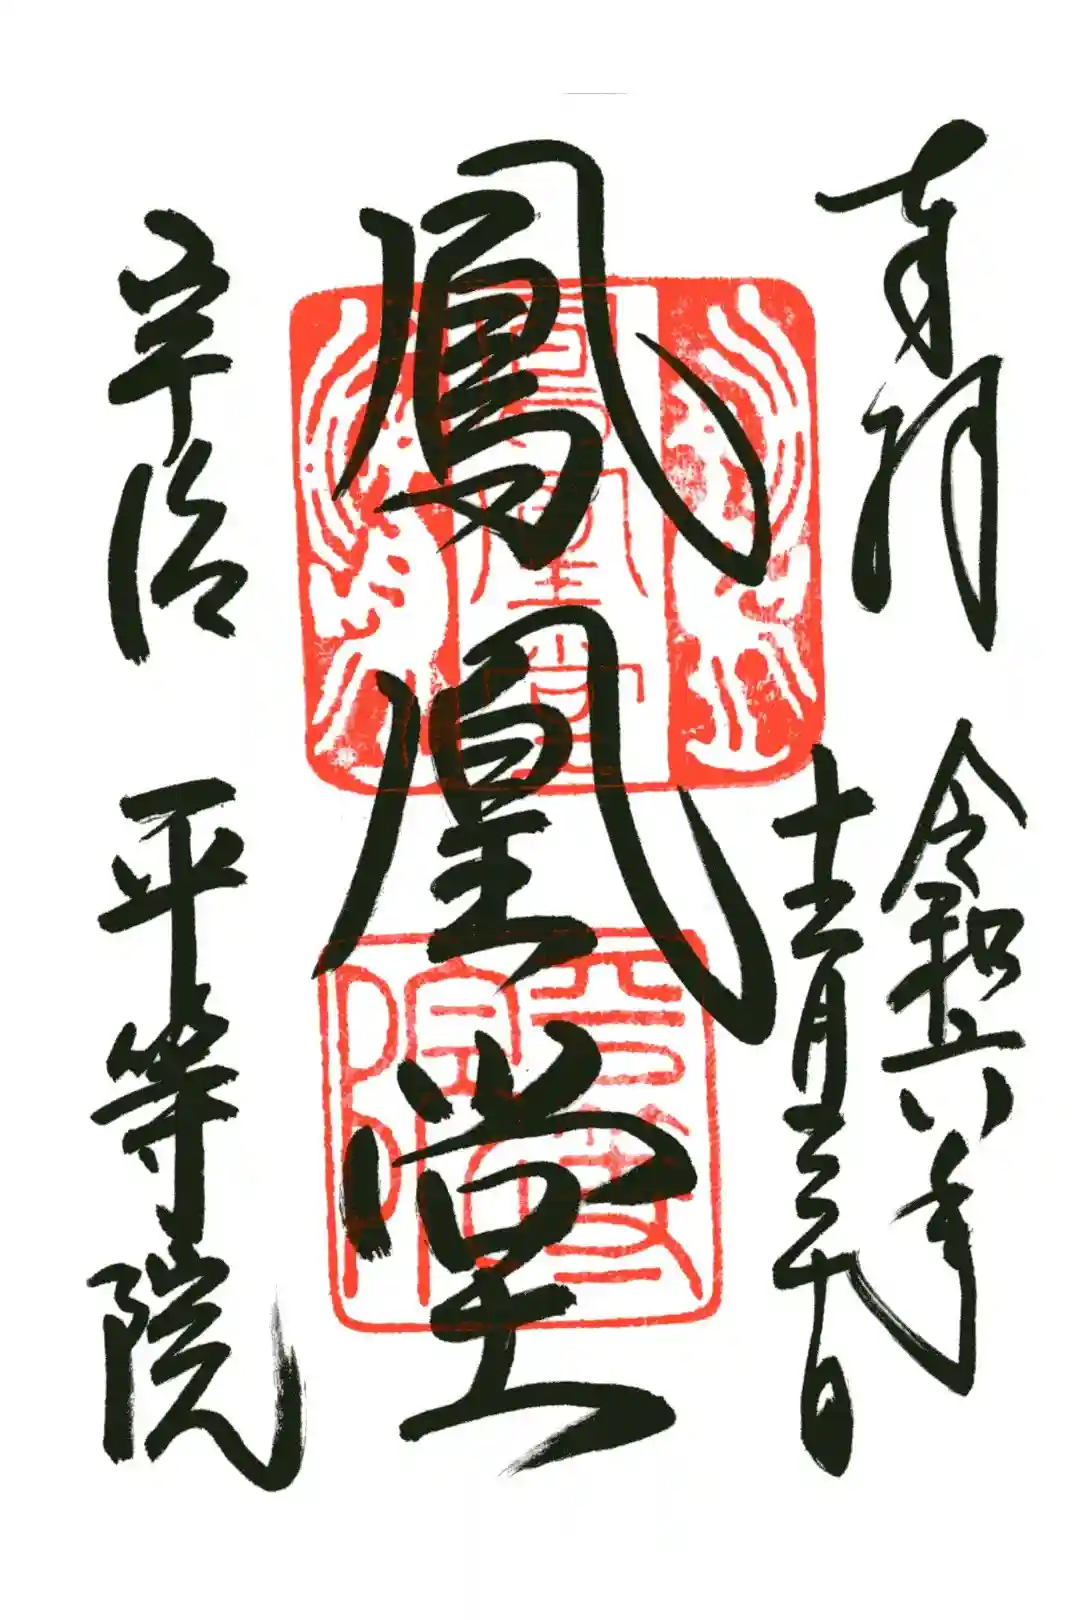 奉拝
令和六年
十二月日
鳳凰堂
宇治 平等院
鳳凰堂
平等院